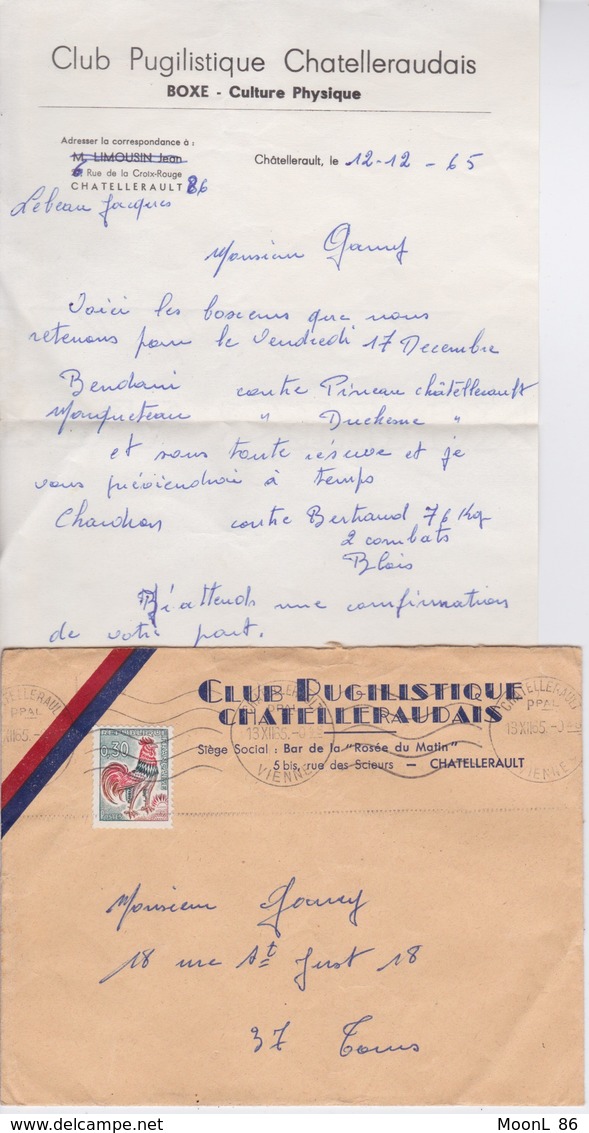 Club Pugilistique Chatelleraudais
BOXE - Culture Physique
Adresser la correspondance à :
M. LIMOUSIN Jean
Rue de la Croix-Rouge
CHATELLERAULT 86
Lebeau Jacques
Châtellerault, le 12-12-65
Monsieur
Voici les boxeurs que nous
retenons pour le Vendredi 17 Decembre
Bendani contre Pineau châtellerault
Mouqueteau " Duchesne "
et sous toute réserve et je
vous préviendrai à temps
Chardron contre Bertrand 76 Kg
2 combats
Blois
J'attends une confirmation
de votre part.
CLUB PUGILISTIQUE
CHATELLERAUDAIS
Siège Social : Bar de la "Rosée du Matin"
5 bis, rue des Scieurs - CHATELLERAULT
CHATELLERAULT
PPAL
VIENNE
0,30
Monsieur
18 rue St Just 18
37 Tours
MoonL 86